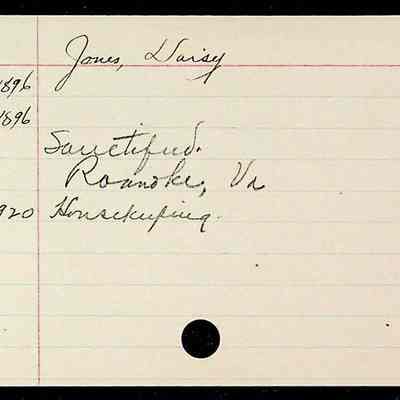 Jones, Daisy
1896
1896
Sanctified.
Roanoke, Va
920 Housekeeping.